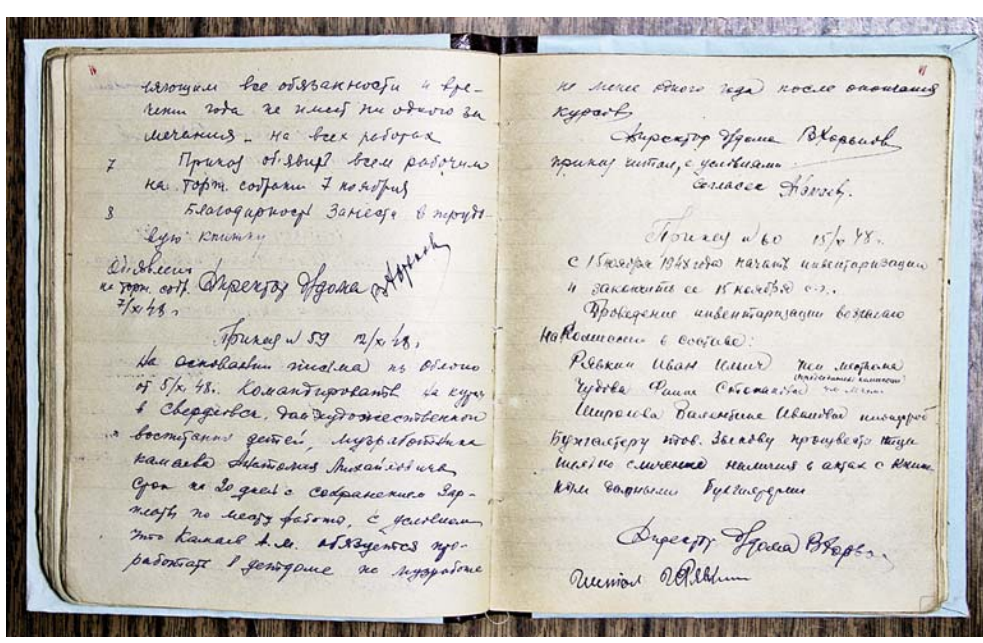 няющим все обязанности и в те-
чении года не имеет ни одного за
мечания на всех работах
7 Приказ об'явить всем рабочим
на торж. собрании 7 ноября
8 Благодарность занести в трудо-
вую книжку
Об'явлено
на торж. собр. Директор д/дома В Харьков
7/XI 48 г.
Приказ № 59 12/XI 48 г.
На основании письма из облоно
от 5/XI 48 г. командировать на курсы
в Свердловск, художественного
воспитания детей, музработника
Камаева Анатолия Михайловича
срок на 20 дней с сохранением зар-
платы по месту работы, с условием
что Камаев А.М. обязуется про-
работать в детдоме на музработе
не менее одного года после окончания
курсов
Директор д/дома В Харьков
приказ читал, с условиями
согласен Камаев.
Приказ № 60 15/XI 48 г.
с 15 ноября 1948 года начать инвентаризацию
и закончить ее 15 ноября с.г.
Проведение инвентаризации возлагаю
на комиссию в составе:
Рявкин Иван Ильич
(председатель комиссии)
Чудова Фаина
Широкова Валентина Ивановна
Бухгалтеру тов. Звекову произвести
сличение наличия в актах с книж
ным данными бухгалтерии
Директор д/дома В Харьков
Читал Рявкин